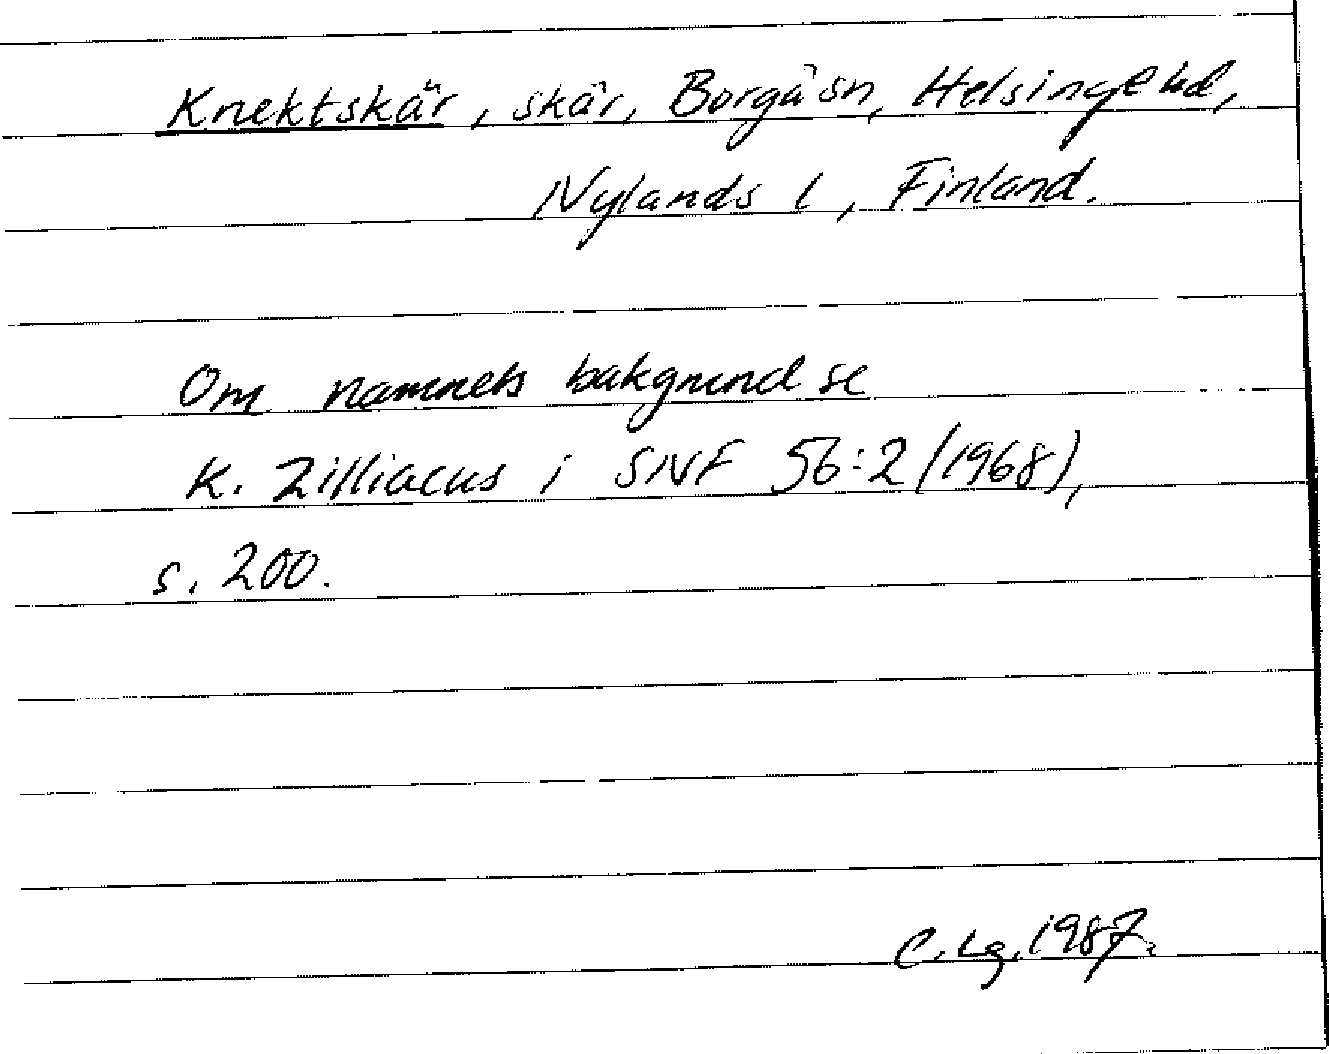 Knektskär, skär, Borgå sn, Helsinge hd,
Nylands l, Finland.
Om namnets bakgrund se
K. Zilliacus i SNF 56:2 (1968),
s. 200.
C. Lg. 1987.